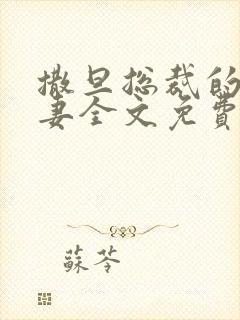 撒旦总裁的
妻全文免費
蘇苓